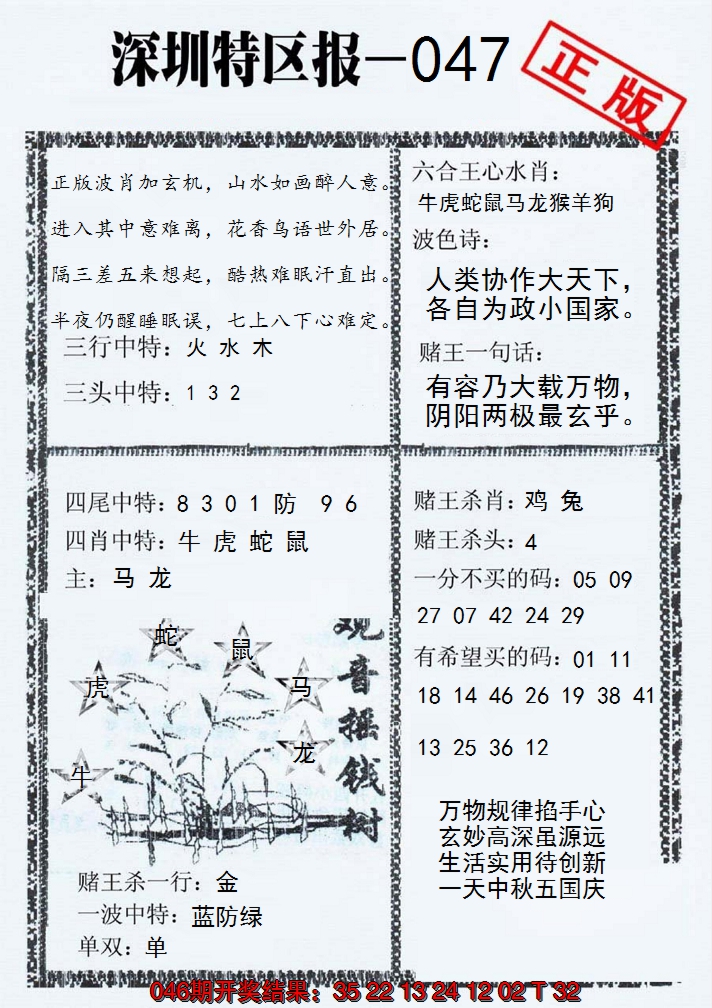 深圳特区报—047
正版
正版波肖加玄机，山水如画醉人意。
进入其中意难离，花香鸟语世外居。
隔三差五来想起，酷热难眠汗直出。
半夜仍醒睡眠误，七上八下心难定。
三行中特：火 水 木
三头中特：1 3 2
六合王心水肖：
牛虎蛇鼠马龙猴羊狗
波色诗：
人类协作大天下，
各自为政小国家。
赌王一句话：
有容乃大载万物，
阴阳两极最玄乎。
四尾中特：8 3 0 1 防 9 6
四肖中特：牛 虎 蛇 鼠
主：马 龙
蛇
鼠
虎
马
龙
牛
观音摇钱树
赌王杀一行：金
一波中特：蓝防绿
单双：单
赌王杀肖：鸡 兔
赌王杀头：4
一分不买的码：05 09
27 07 42 24 29
有希望买的码：01 11
18 14 46 26 19 38 41
13 25 36 12
万物规律掐手心
玄妙高深虽源远
生活实用待创新
一天中秋五国庆
046期开奖结果：35 22 13 24 12 02 T 32